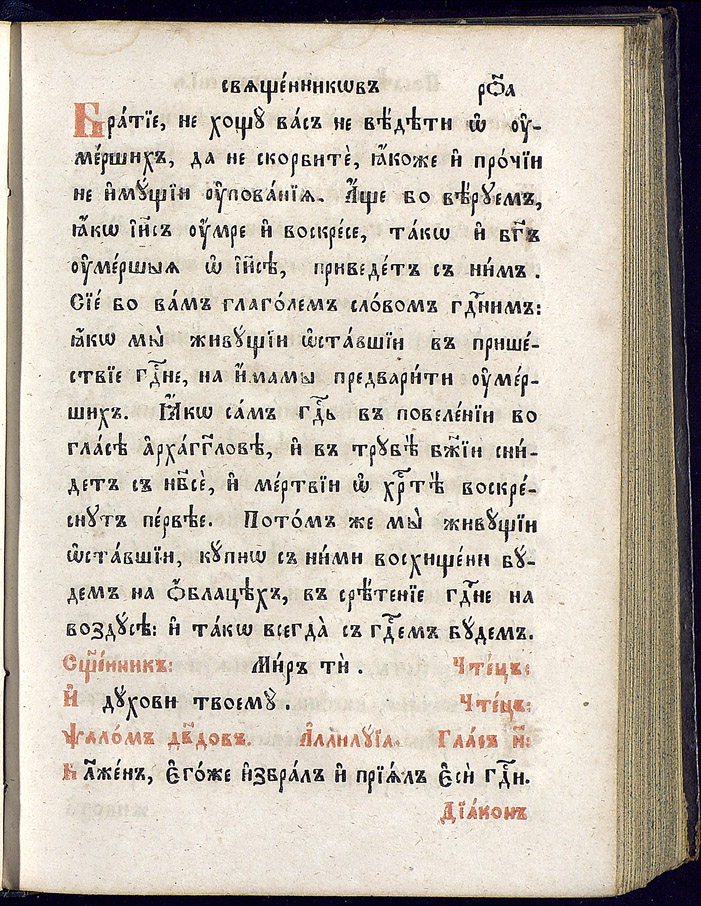 свѧще́нникѡвъ рѻ҃а
Бра́тїе, не хощꙋ̀ ва́съ не вѣ́дѣти ѡ҆ ᲂу҆-
ме́ршихъ, да не скорбитѐ, ꙗ҆́коже и҆ про́чїи
не и҆мꙋ́щїи ᲂу҆пова́нїѧ. А҆́ще бо вѣ́рꙋемъ,
ꙗ҆́кѡ і҆и҃съ ᲂу҆́мре и҆ воскре́се, та́кѡ и҆ бг҃ъ
ᲂу҆ме́ршыѧ ѡ҆ і҆и҃сѣ, приведе́тъ съ ни́мъ.
Сїе́ бо ва́мъ глаго́лемъ сло́вомъ гдⷭ҇нимъ:
ꙗ҆́кѡ мы̀ живꙋ́щїи ѡ҆ста́вшїи въ прише́-
ствїе гдⷭ҇не, на и҆́мамы предвари́ти ᲂу҆ме́р-
шихъ. Ꙗ҆́кѡ са́мъ гдⷭ҇ь въ повеле́нїи во
гла́сѣ а҆рха́гг҃ловѣ, и҆ въ трꙋбѣ̀ бж҃їи сни́-
детъ съ нб҃сѐ, и҆ ме́ртвїи ѡ҆ хрⷭ҇тѣ̀ воскре́-
снꙋтъ пе́рвѣе. Пото́мъ же мы̀ живꙋ́щїи
ѡ҆ста́вшїи, кꙋ́пнѡ съ ни́ми восхище́ни бꙋ́-
демъ на ѻ҆́блацѣхъ, въ срѣ́тенїе гдⷭ҇не на
воздꙋ́сѣ: и҆ та́кѡ всегда̀ съ гдⷭ҇емъ бꙋ́демъ.
Сщ҃е́нникъ: Ми́ръ тѝ. Чте́цъ:
И҆ дꙋ́хови твоемꙋ̀. Чте́цъ:
Ѱало́мъ дв҃довъ. А҆ллилꙋ́їа. Гла́съ и҃:
Бл҃же́нъ, є҆го́же и҆збра́лъ и҆ прїѧ́лъ є҆сѝ гдⷭ҇и.
Дїа́конъ